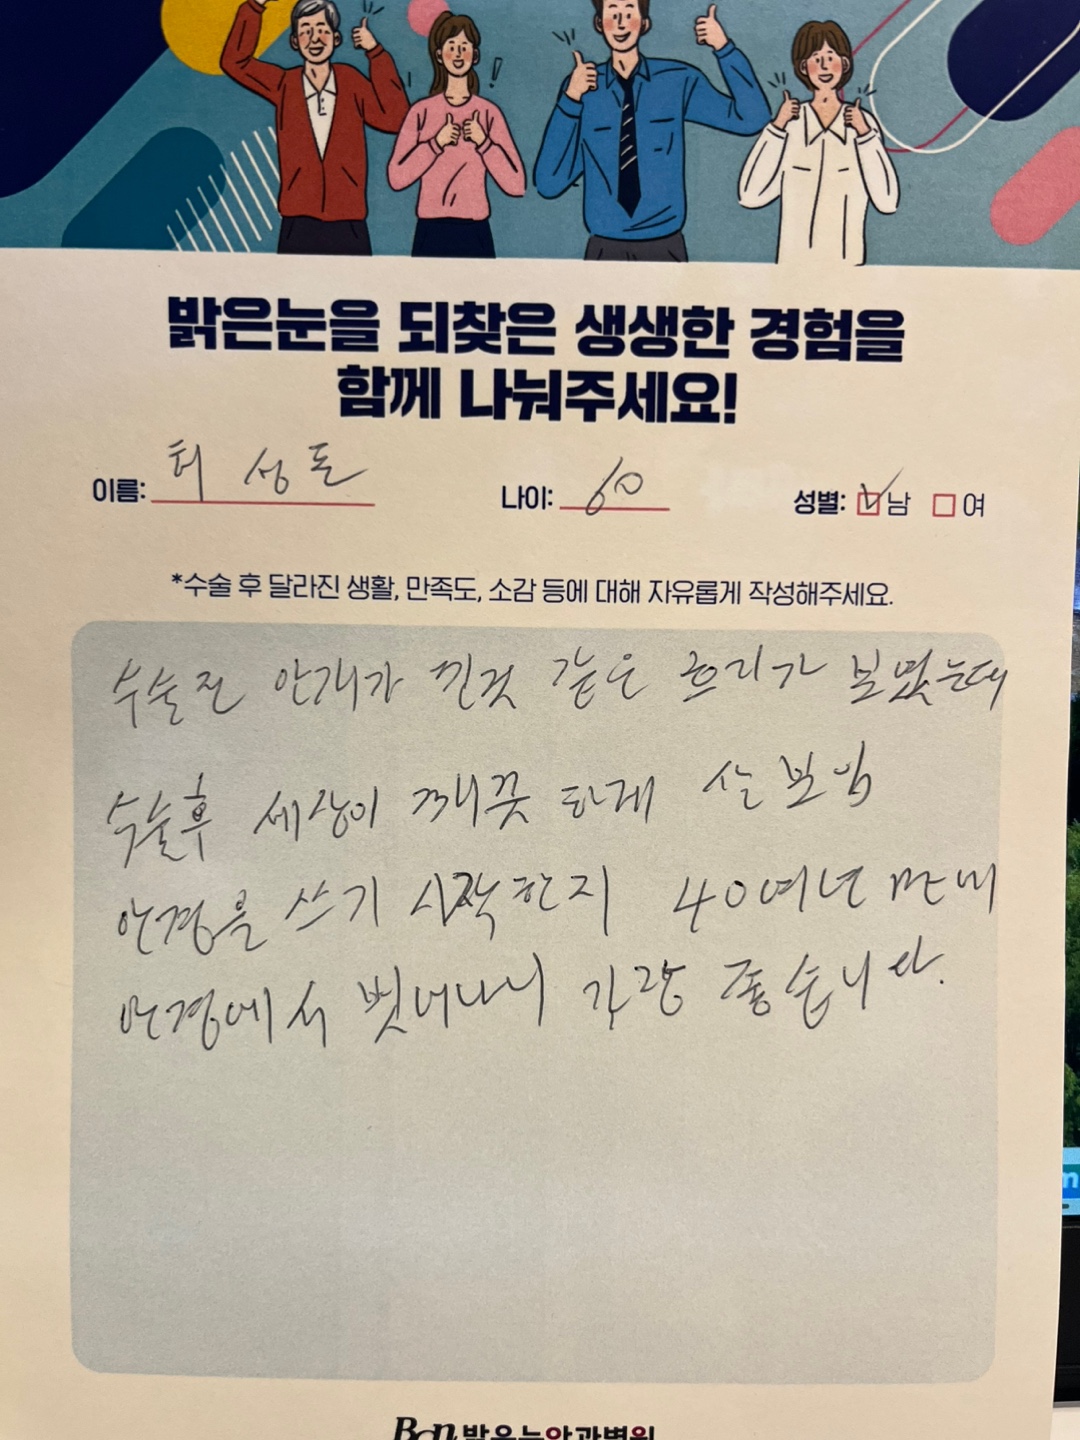 밝은눈을 되찾은 생생한 경험을
함께 나눠주세요!
이름: 최성돈 나이: 60 성별: ☑남 ☐여
*수술 후 달라진 생활, 만족도, 소감 등에 대해 자유롭게 작성해주세요.
수술전 안개가 낀것 같은 흐리가 보였는데
수술후 세상이 깨끗하게 잘 보임
안경을 쓰기 시작한지 40여년 만에
안경에서 벗어나니 가장 좋습니다.
밝은눈안과병원